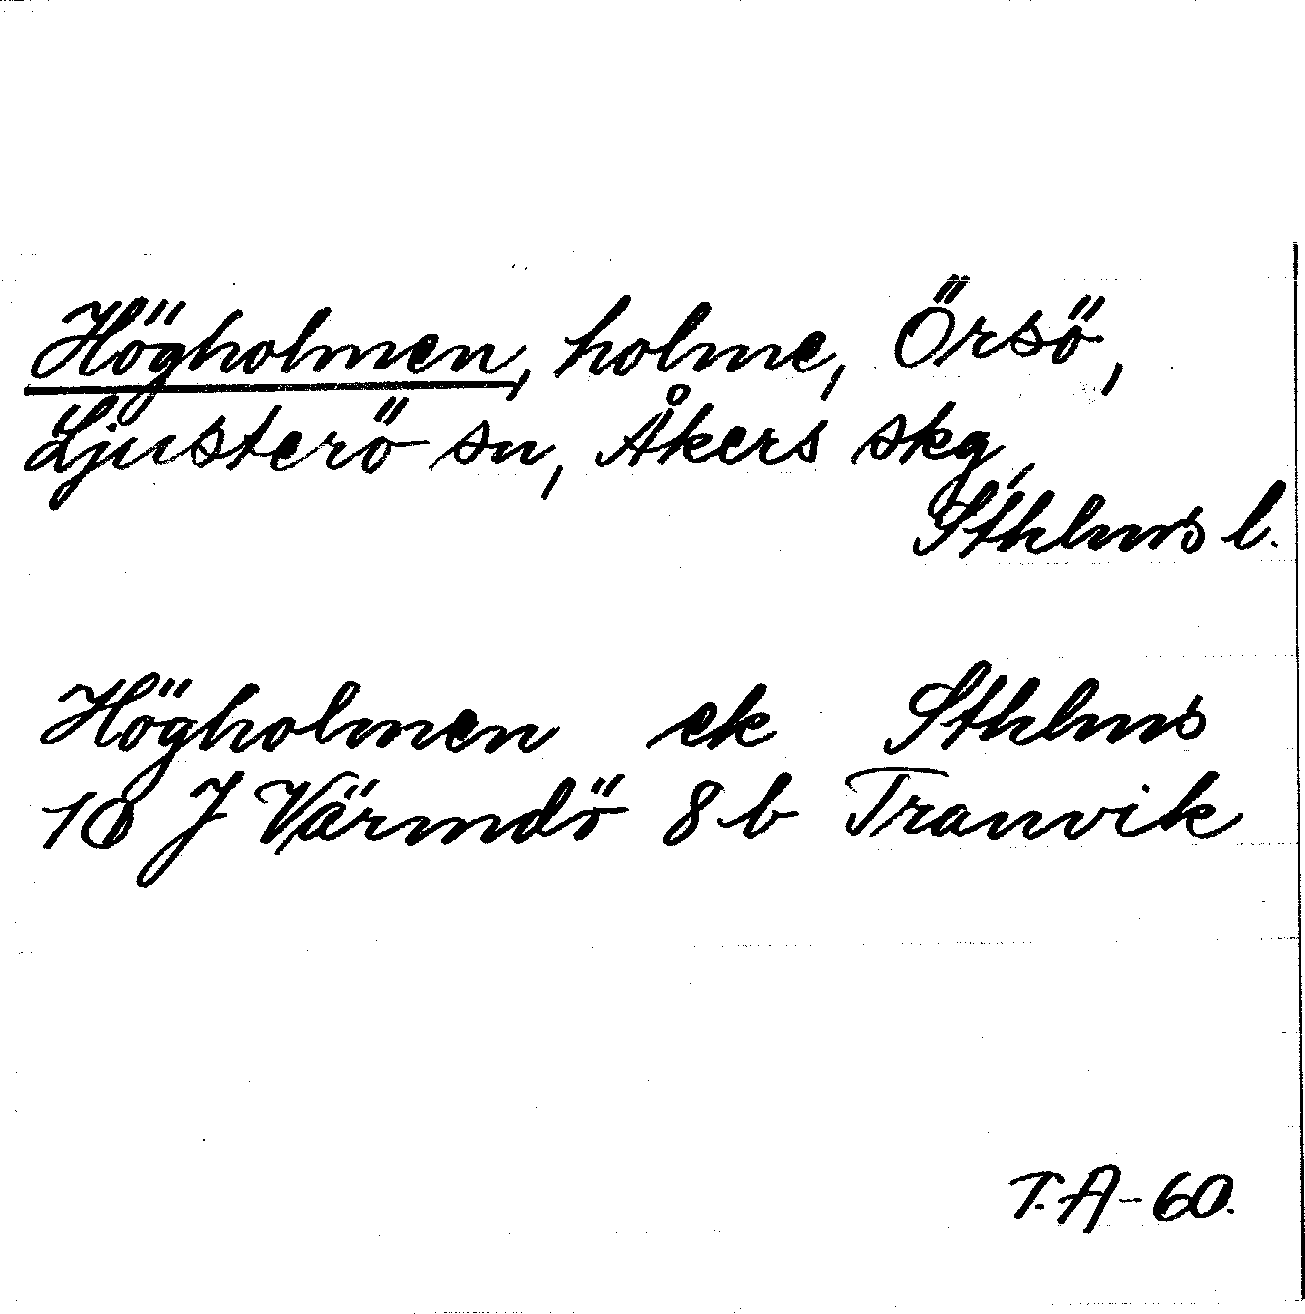 Högholmen, holme, Örsö,
Ljusterö sn, Åkers skg,
Sthlms l.
Högholmen ek Sthlms
10 J Värmdö 8 b Tranvik
T.A-60.